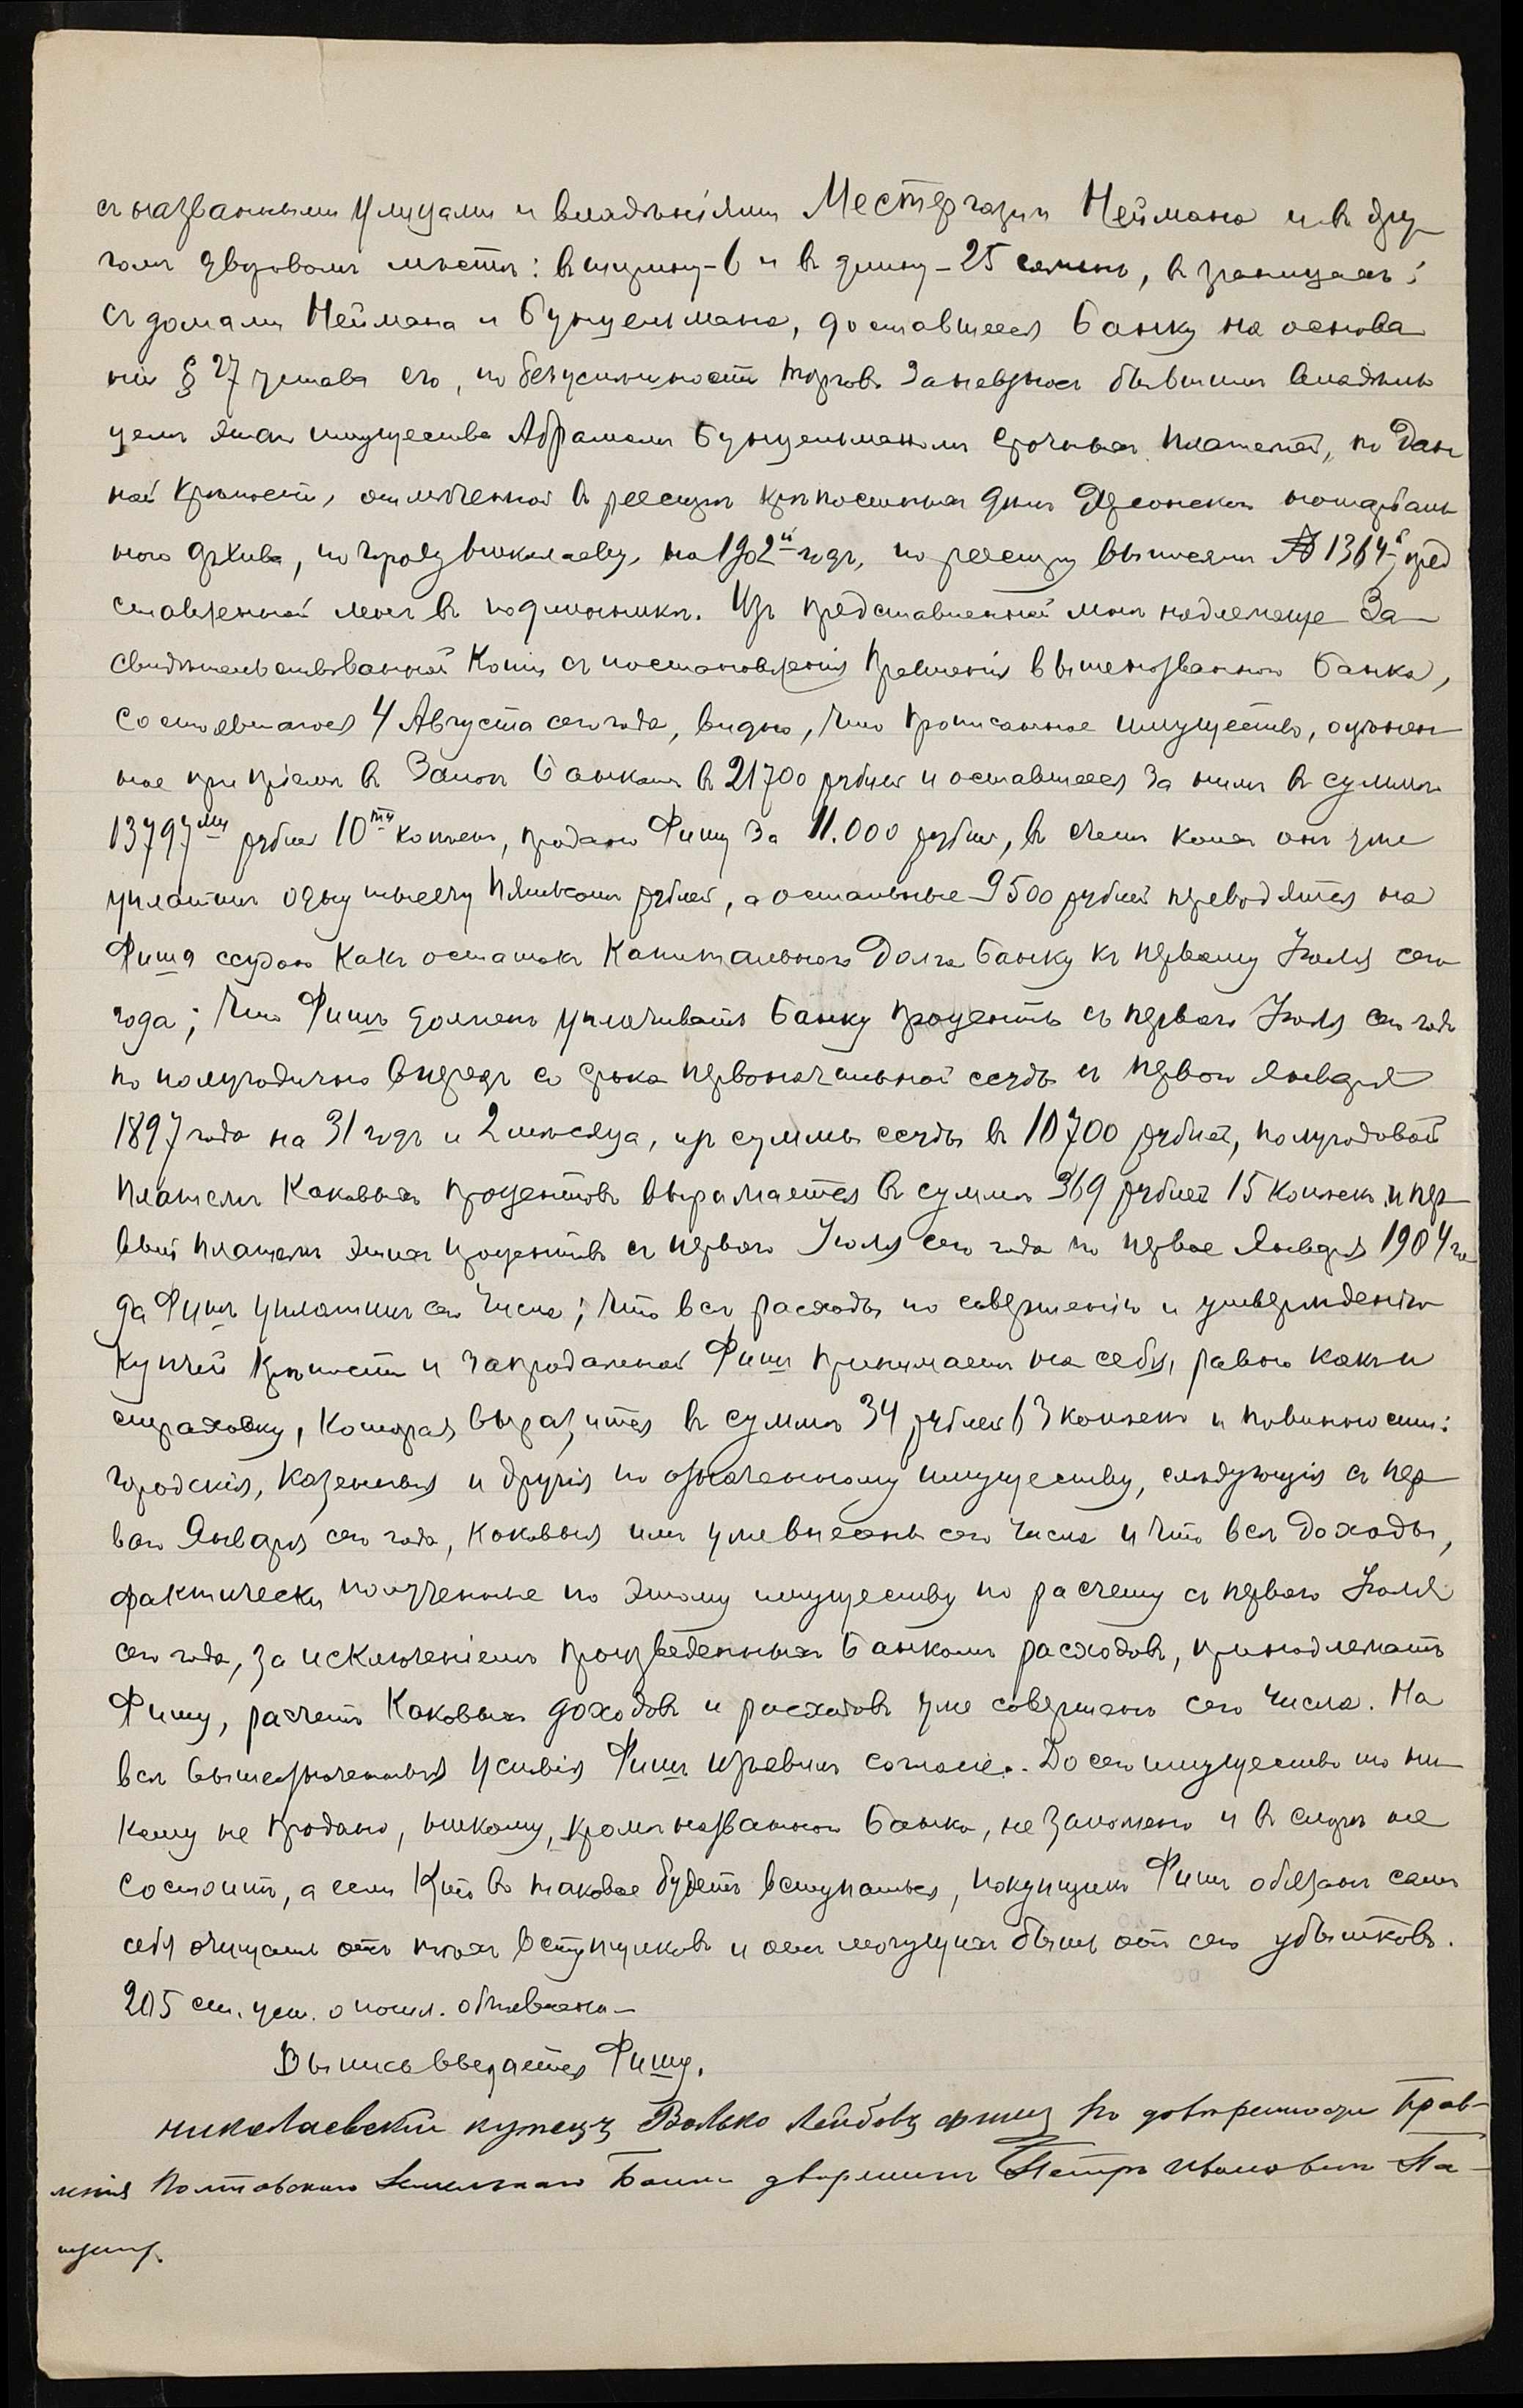 съ названными улицами и владѣніями Местергази и Неймана и въ дру
гомъ дворовомъ мѣстѣ: въ ширину – 6 и въ длину – 25 сажень, въ границахъ:
съ домами Неймана и Бунцельмана, доставшееся банку на основа
ніи § 27 устава его, по безуспѣшности торговъ за невзносъ бывшимъ владѣль
цемъ этого имущества Абрамомъ Бунцельманомъ срочныхъ платежей, по Дан
ной крѣпости, отмѣченной въ реестрѣ крѣпостныхъ дѣлъ Херсонскаго нотаріаль
наго архива, по городу Николаеву, на 1902й годъ, по реестру выписями № 1364й, пред
ставленной мнѣ въ подлинникѣ. Изъ представленной мнѣ надлежаще За
свидѣтельствованной копіи съ постановленія Правленія вышеназваннаго банка,
состоявшагося 4 Августа сего года, видно, что прописанное имущество, оцѣнен
ное при пріемѣ въ Залогъ Банкомъ въ 21700 рублей и оставшееся за нимъ въ суммѣ
13797ми рублей 10ти копѣекъ, продано Фишу за 11.000 рублей, въ счетъ коихъ онъ уже
уплатилъ одну тысячу пятьсотъ рублей, а остальные 9500 рублей переводятся на
Фиша ссудою какъ остатокъ Капитальнаго Долга банку къ первому Іюля сего
года; что Фишъ долженъ уплачивать Банку проценты съ первого Іюля сего года
по полугодично впередъ со срока первоначальной ссуды съ перваго Января
1897 года на 31 годъ и 2 мѣсяца, изъ суммы ссуды въ 10700 рублей, полугодовой
платежъ каковыхъ процентовъ выражается въ суммѣ 369 рублей 15 копѣекъ и пер
вый платежъ этихъ процентовъ съ перваго Іюля сего года по первое Января 1904 го
да Фишъ уплатилъ сего числа; что всѣ расходы по совершенію и утвержденію
купчей крѣпости и запродажной Фишъ принимаетъ на себя, равно какъ и
страховку, которая выразится въ суммѣ 34 рублей 63 копѣекъ и повинности:
городскія, казенныя и другія по означенному имуществу, слѣдующія съ пер
ваго Января сего года, каковыя имъ уже внесены сего числа и что всѣ доходы,
фактически полученные по этому имуществу по расчету съ перваго Іюля
сего года, за исключеніемъ произведенныхъ Банкомъ расходовъ, принадлежатъ
Фишу, расчетъ каковыхъ доходовъ и расходовъ уже совершенъ сего числа. На
всѣ вышеозначенныя условія Фишъ изъявилъ согласіе. До сего имущество то ни
кому не продано, никому, кромѣ названнаго банка, не заложено и въ спорѣ не
состоитъ, а если кто въ таковое будетъ вступаться, покупщикъ Фишъ обязанъ самъ
себя очищать отъ тѣхъ вступщиковъ и отъ могущихъ быть отъ сего убытковъ.
205 ст. уст. о пошл. объявлена –
Выпись выдается Фишу.
николаевский купецъ Волько Лейбовъ Фишъ По довѣренности Прав-
ленія Полтавскаго Земельнаго Банка дворянинъ Петръ Ивановичъ Па-